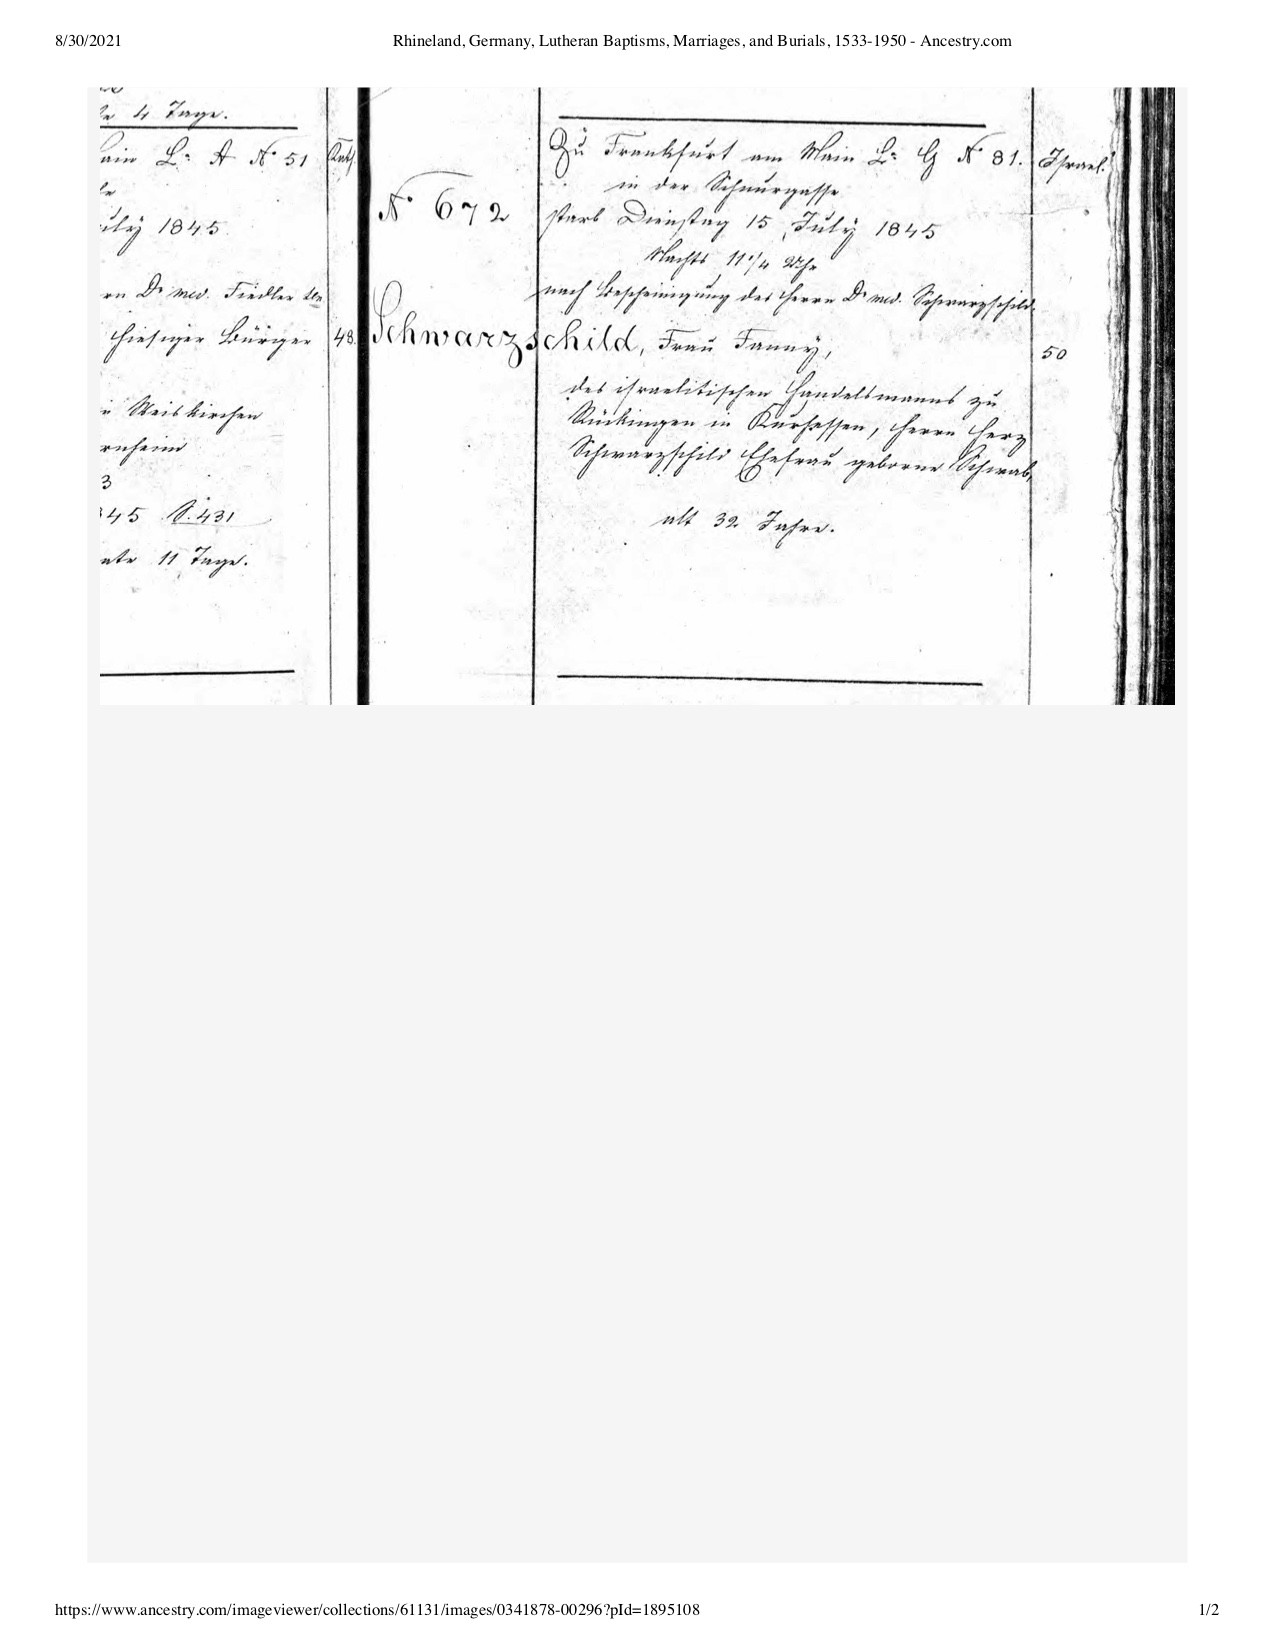 8/30/2021
Rhineland, Germany, Lutheran Baptisms, Marriages, and Burials, 1533-1950 - Ancestry.com
4 Tage.
ain L: A N° 51
uly 1845.
rn Dr med. Fiedler
hiesiger Bürger
48.
in Weiskirchen
rnheim
3
845 S. 431
ate 11 Tage.
N° 672
Zu Frankfurt am Main L: G N° 81.
Israel.
in der Schnurgasse
starb Dienstag 15 July 1845
Nachts 11 1/4 Uhr
nach Bescheinigung des Herrn Dr med. Schwarzschild.
Schwarzschild, Frau Fanny,
50
des israelitischen Handelsmanns zu
Rückingen in Kurhessen, Herrn Herz
Schwarzschild Ehefrau geborne Schwab,
alt 32 Jahre.
https://www.ancestry.com/imageviewer/collections/61131/images/0341878-00296?pId=1895108
1/2